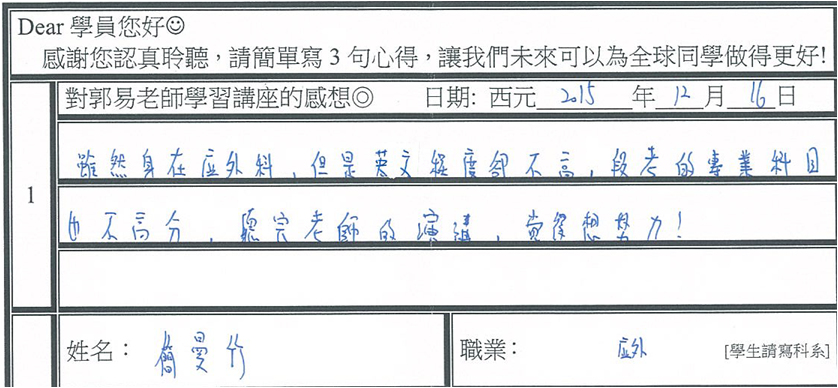 Dear 學員您好☺
感謝您認真聆聽，請簡單寫 3 句心得，讓我們未來可以為全球同學做得更好!
對郭易老師學習講座的感想◎ 日期: 西元 2015 年 12 月 16 日
1
雖然身在应外科，但是英文程度卻不高，段考的專業科目
也不高分，聽完老師的演講，覚得想努力！
姓名： 簡曼竹 職業： 应外 [學生請寫科系]